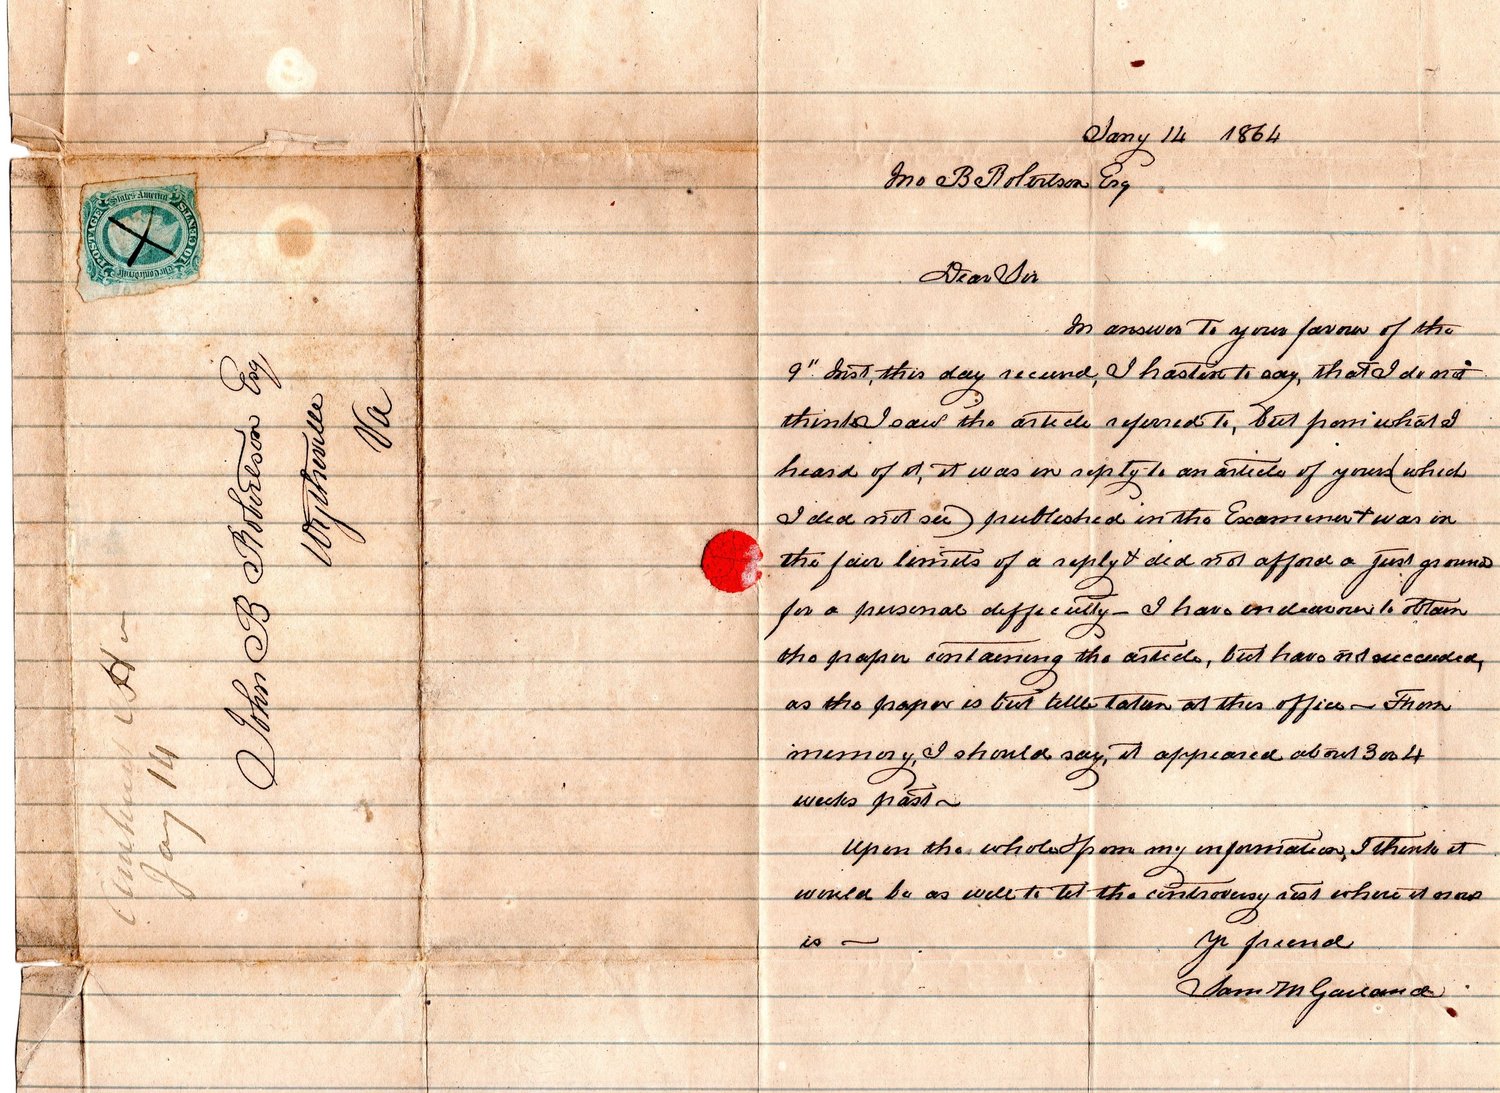 Jany 14 1864
Jno B Robertson Esq
Dear Sir
In answer to your favour of the
9" Inst, this day received, I hasten to say, that I do not
think I saw the article referred to, but from what I
heard of it, it was in reply to an article of yours (which
I did not see) published in the Examiner & was in
the fair limits of a reply & did not afford a just ground
for a personal difficulty — I have endeavour to obtain
the paper containing the article, but have not succeeded,
as the paper is but little taken at this office — From
memory, I should say, it appeared about 3 or 4
weeks past —
Upon the whole & from my information, I think it
would be as well to let the controversy rest where it now
is —
Yr friend
Sam M Garland
John B Robertson Esq
Wytheville
Va
Amherst CH
Jany 14
The Confederate
States America
POSTAGE